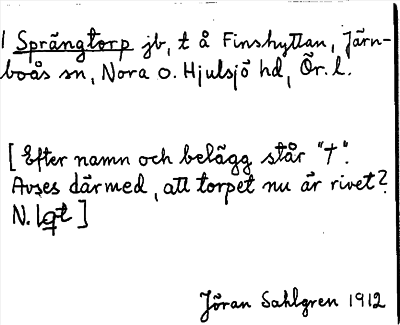 1 Sprängtorp jb, t å Finshyttan, Järn-
boås sn, Nora o. Hjulsjö hd, Ör. l.
[Efter namn och belägg står "†".
Avses därmed, att torpet nu är rivet?
N. Lqt]
Jöran Sahlgren 1912